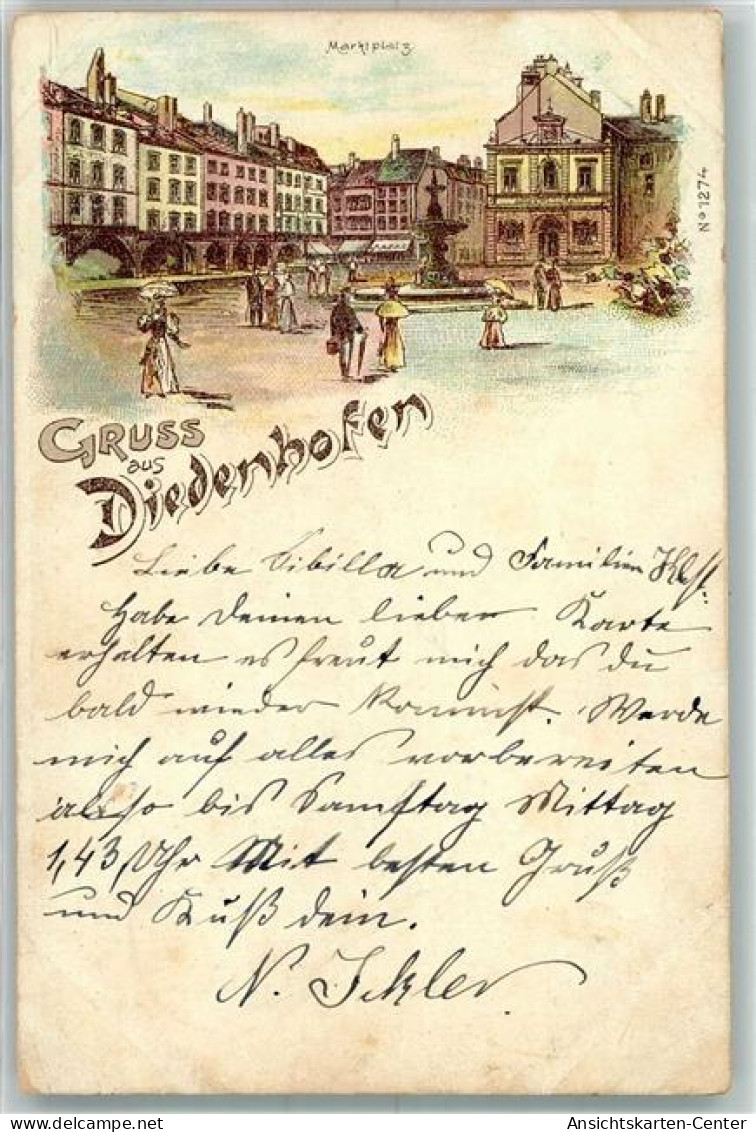 Marktplatz
No 1274
GRUSS
aus
Diedenhofen
Liebe Sibilla und Familien
Habe deinen lieben Karte
erhalten es freut mich das du
bald wieder kommst. Werde
mich auf alles vorbereiten
also bis Samstag Mittag
1,43 Uhr Mit besten Gruß
und Kuß dein.
N. Ickler
www.delcampe.net
Ansichtskarten-Center